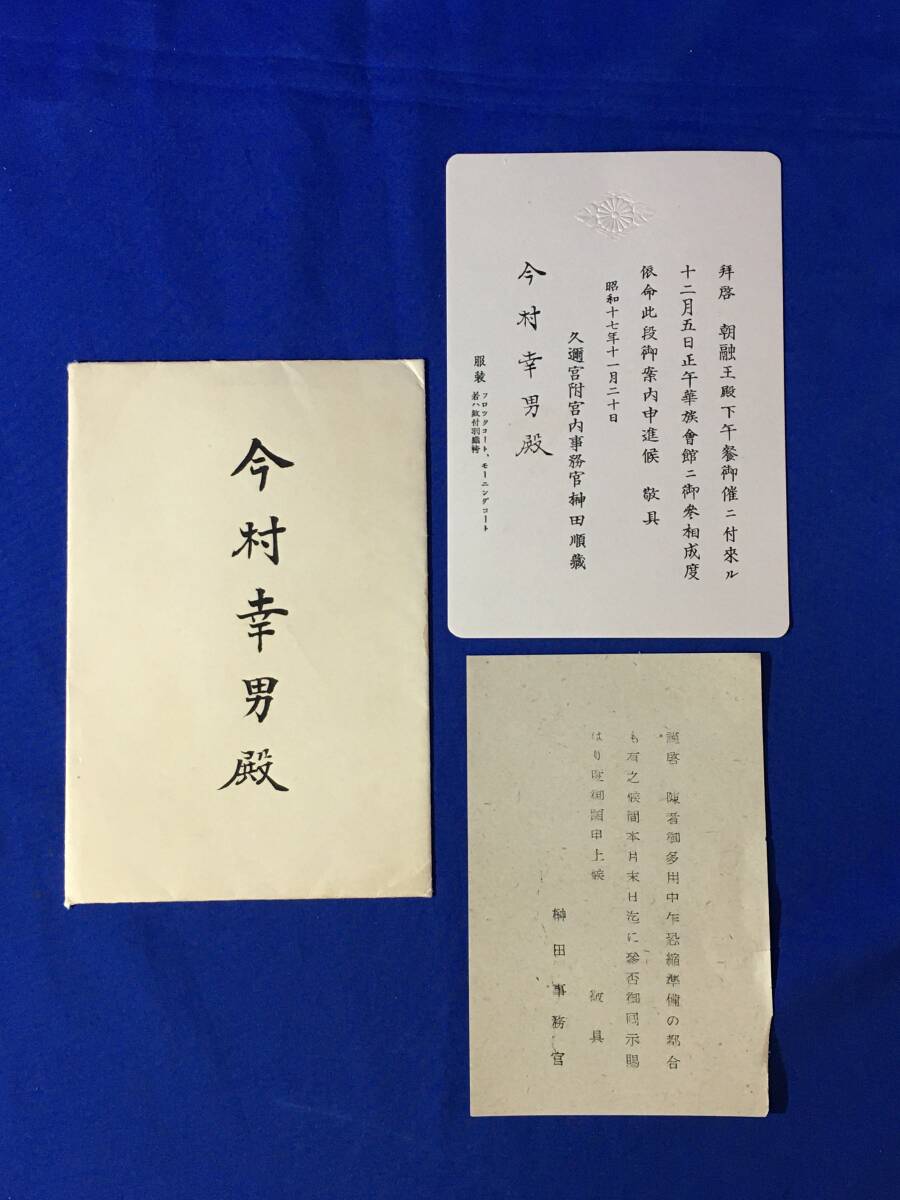 今村幸男殿
拜啓　朝融王殿下午餐御催ニ付來ル
十二月五日正午華族會館ニ御參相成度
依命此段御案内申進候　敬具
昭和十七年十一月二十日
久邇宮附宮内事務官榊田順藏
今村幸男殿
服装　フロックコート、モーニングコート
若ハ紋付羽織袴
謹啓　陳者御多用中乍恐縮準備の都合
も有之候間本月末日迄に參否御囘示賜
はり度御願申上候　敬具
榊田事務官